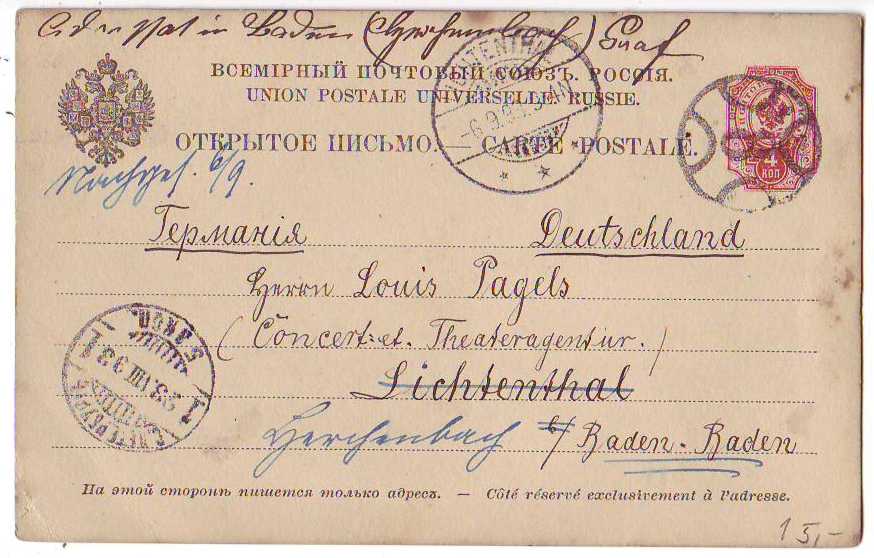 in Baden (Herchenbach) Graf
ВСЕМІРНЫЙ ПОЧТОВЫЙ СОЮЗЪ. РОССІЯ.
UNION POSTALE UNIVERSELLE. RUSSIE.
ОТКРЫТОЕ ПИСЬМО. — CARTE POSTALE.
4
КОП
LICHTENTHAL
Nachges. 6/9.
Германія Deutschland
Herrn Louis Pagels
(Concert- et. Theateragentur.)
Lichtenthal
Herchenbach b/ Baden-Baden
На этой сторонѣ пишется только адресъ. — Côté réservé exclusivement à l'adresse.
15,-